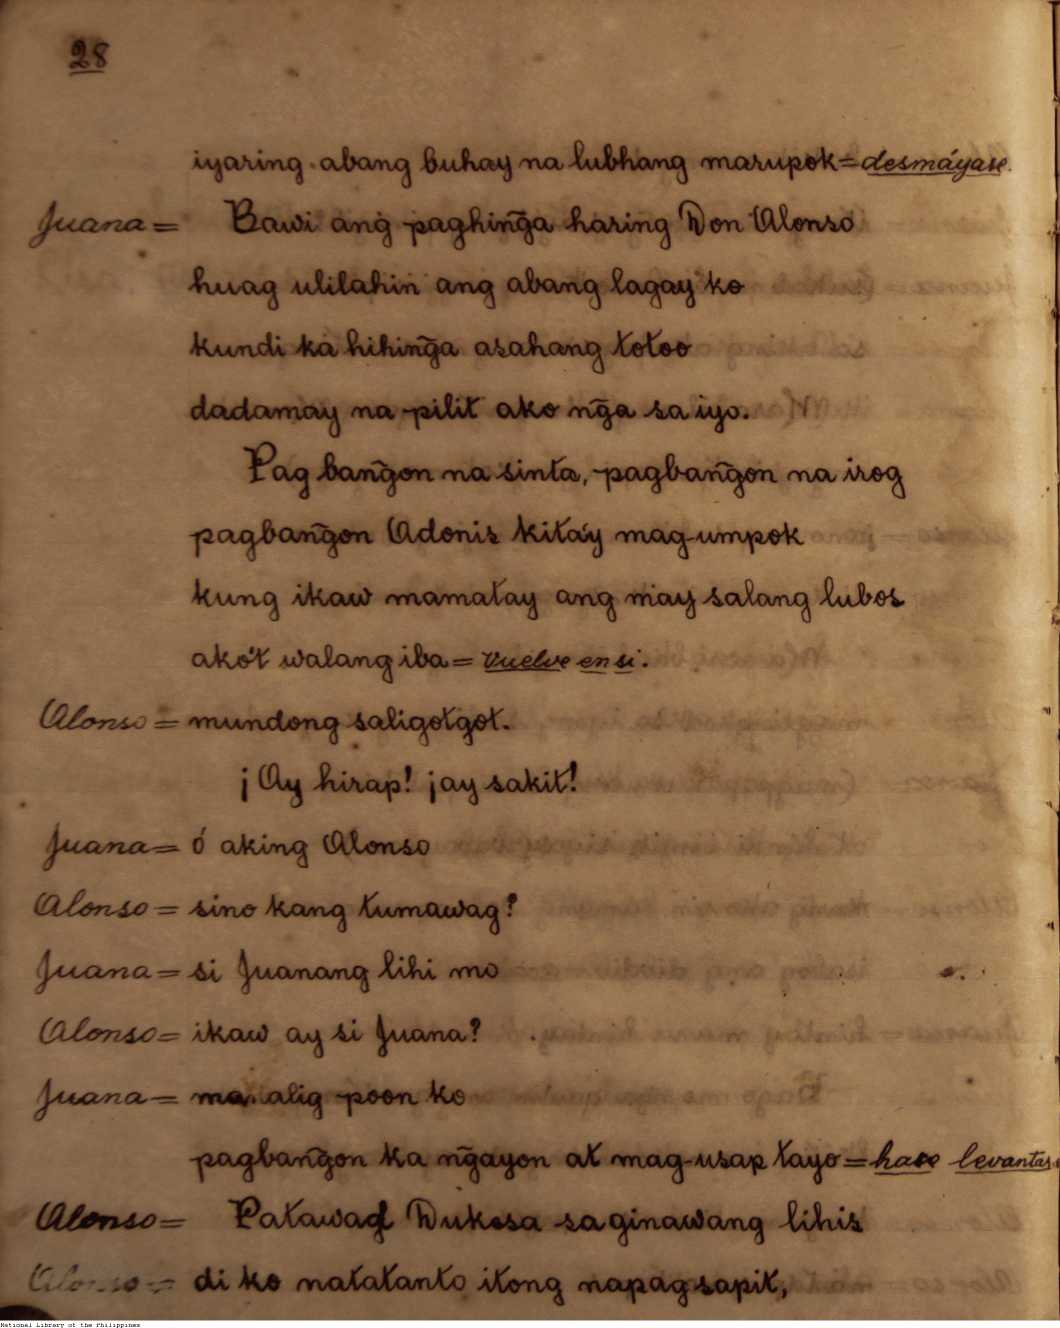 28
iyaring abang buhay na lubhang marupok=desmáyase.
Juana= Bawi ang paghing̃a haring Don Alonso
huag ulilahin ang abang lagay ko
kundi ka hihing̃a asahang totoo
dadamay na pilit ako ng̃a sa iyo.
Pag bang̃on na sinta, pagbang̃on na irog
pagbang̃on Adonis kitáy mag-umpok
kung ikaw mamatay ang may salang lubos
akót walang iba= vuelve en si.
Alonso= mundong saligotgot.
¡Ay hirap! ¡ay sakit!
Juana= ó aking Alonso
Alonso= sino kang tumawag?
Juana= si Juanang lihi mo
Alonso= ikaw ay si Juana?
Juana= alig poon ko
pagbang̃on ka ng̃ayon at mag-usap tayo= hace levantar
Alonso= Patawad Dukesa sa ginawang lihis
Alonso= di ko natatanto itong napagsapit,
National Library of the Philippines